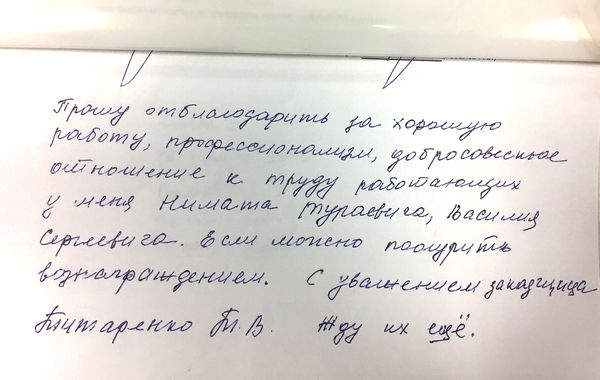 Прошу отблагодарить за хорошую
работу, профессионализм, добросовестное
отношение к труду работающих
у меня Нимата Тураевича, Василия
Сергеевича. Если можно поощрить
вознаграждением. С уважением заказчица
Титаренко Т. В. Жду их ещё.